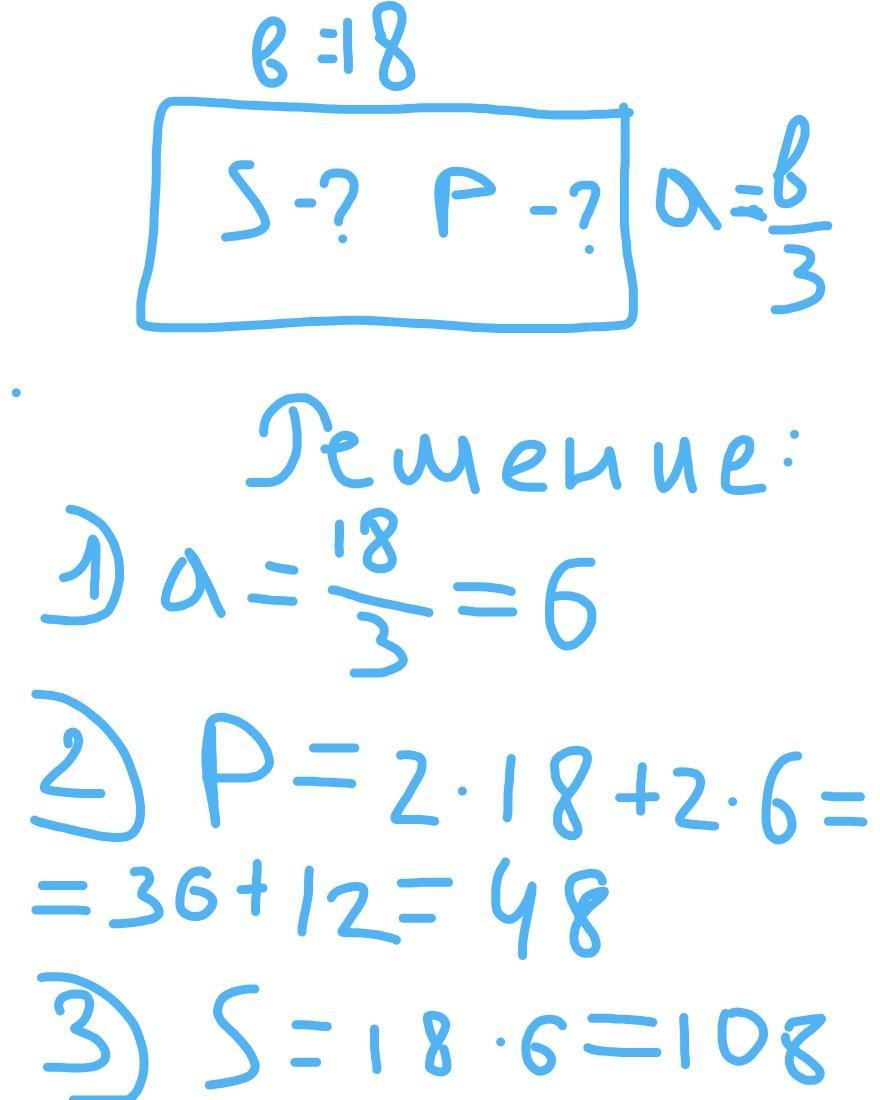 в = 18
S - ? P - ? a = в/3
Решение:
1) a = 18/3 = 6
2) P = 2 · 18 + 2 · 6 =
= 36 + 12 = 48
3) S = 18 · 6 = 108